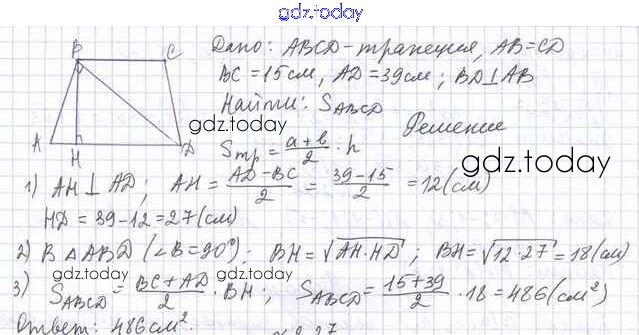 gdz.today
B C
A H D
Дано: ABCD-трапеция, AB=CD
BC=15см, AD=39см; BD⊥AB
Найти: S_ABCD
gdz.today
Решение
S_тр = (a+b)/2 · h
gdz.today
1) AH⊥AD; AH = (AD-BC)/2 = (39-15)/2 = 12(см)
HD = 39-12=27(см)
2) В △ABD (∠B=90°): BH=√(AH·HD); BH=√(12·27)=18(см)
gdz.today
gdz.today
3) S_ABCD = (BC+AD)/2 · BH; S_ABCD = (15+39)/2 · 18 = 486(см²)
Ответ: 486см².